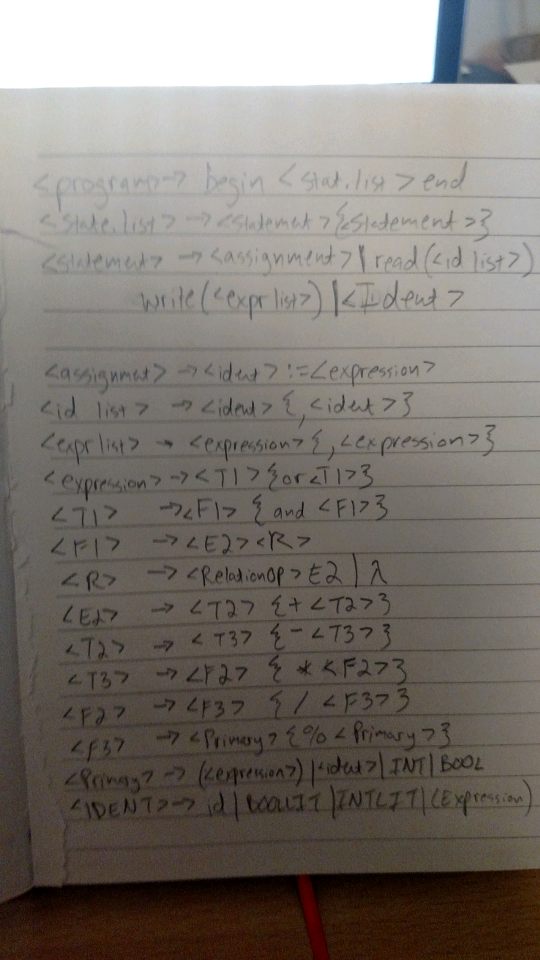 <program> → begin <stat.list> end
<state.list> → <statemat> {<statement>}
<statemet> → <assignment> | read(<id list>)
write(<expr list>) | <Ident>
<assignmat> → <ident> := <expression>
<id list> → <ident> {, <ident>}
<expr list> → <expression> {, <expression>}
<expression> → <T1> {or <T1>}
<T1> → <F1> {and <F1>}
<F1> → <E2> <R>
<R> → <RelationOP> E2 | λ
<E2> → <T2> {+ <T2>}
<T2> → <T3> {- <T3>}
<T3> → <F2> {* <F2>}
<F2> → <F3> {/ <F3>}
<F3> → <Primary> {% <Primary>}
<Primary> → (<expression>) | <ident> | INT | BOOL
<IDENT> → id | BOOLLIT | INTLIT | (Expression)